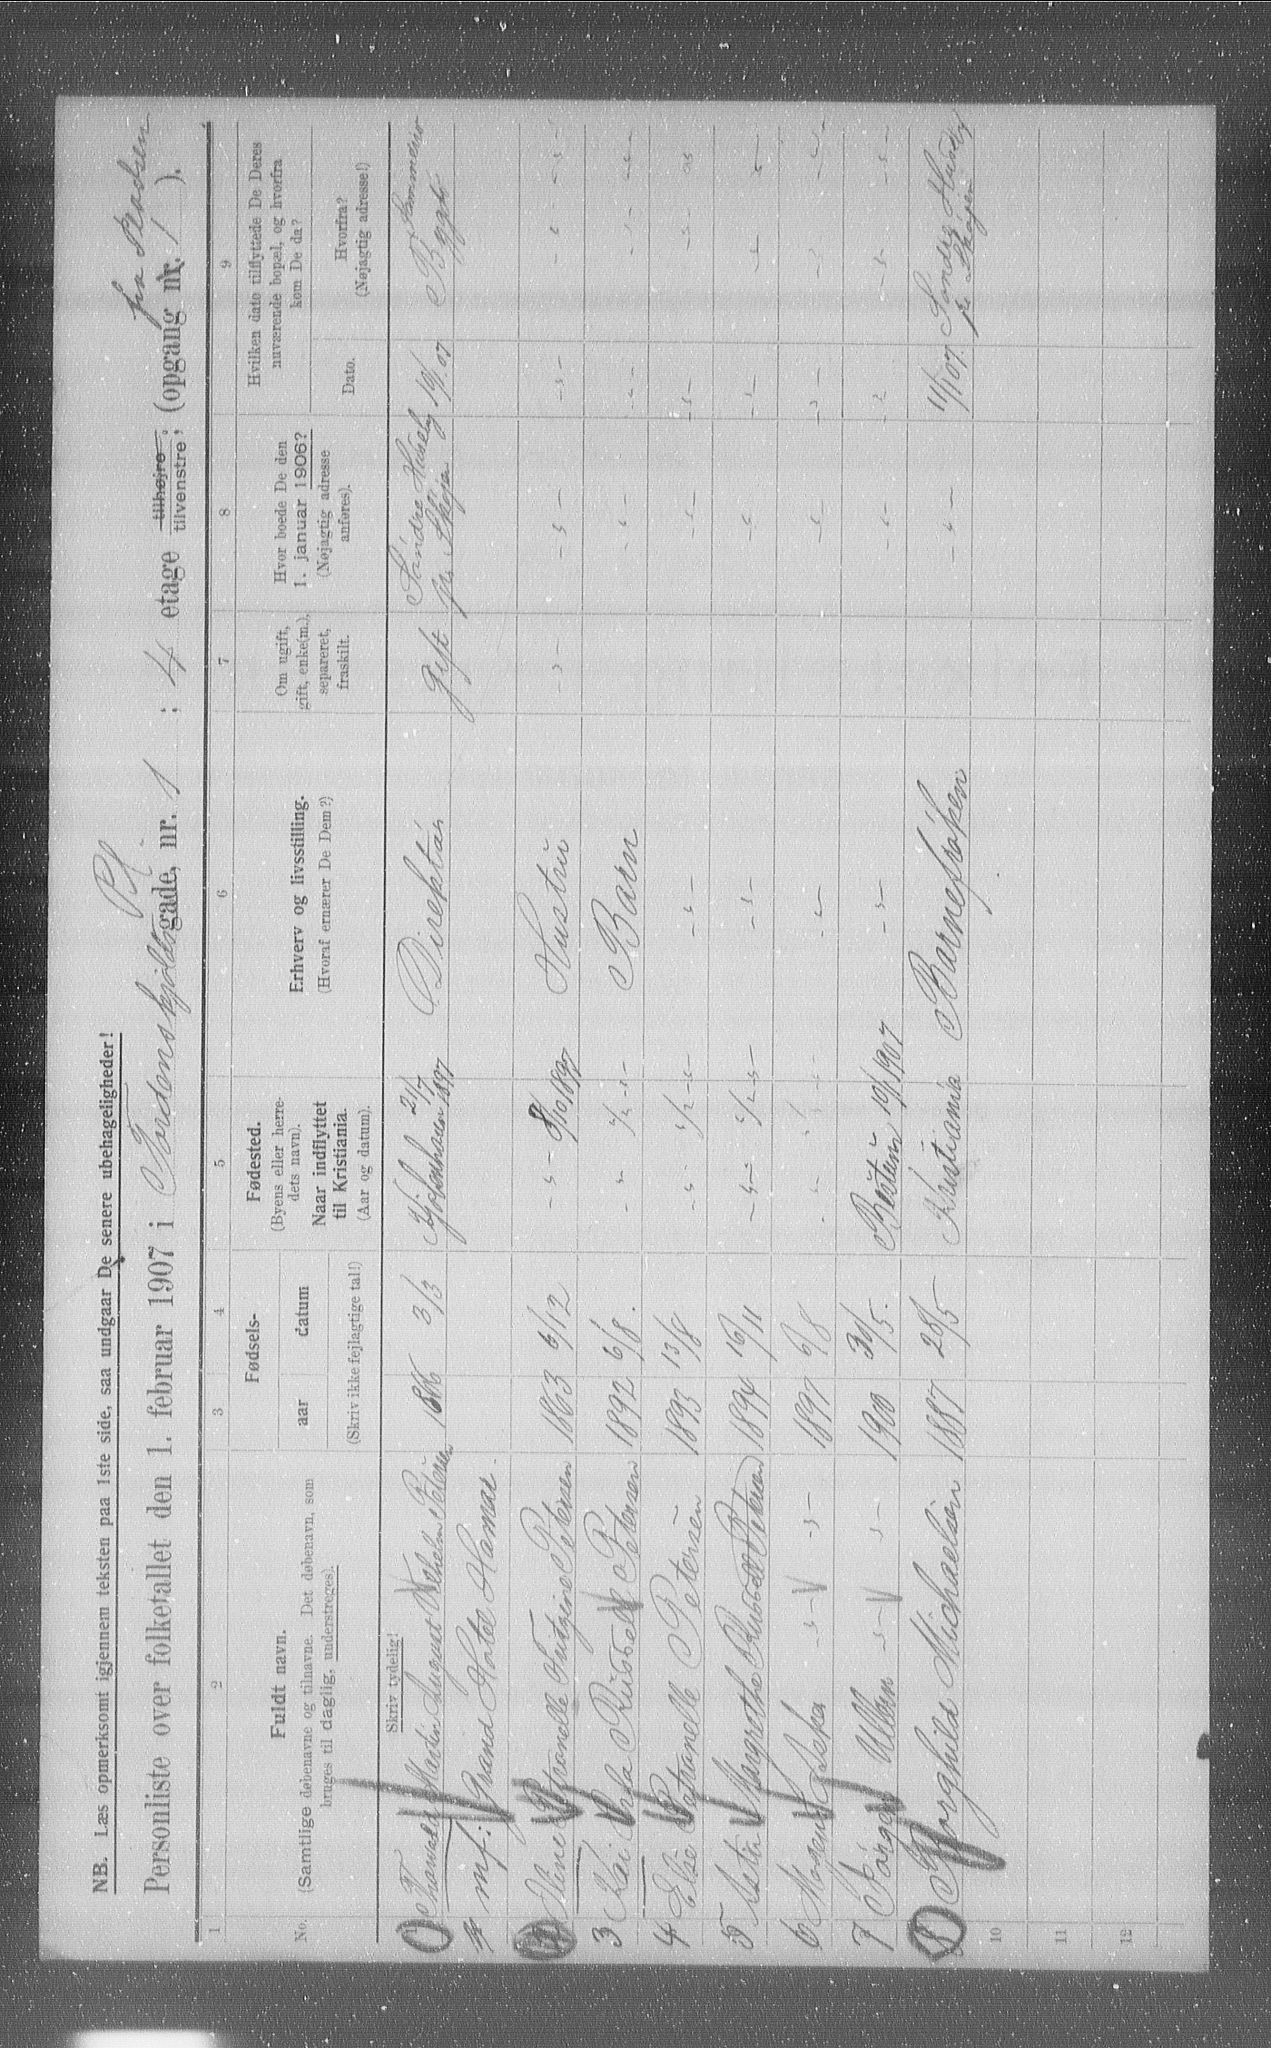 NB. Læs opmerksomt igjennem teksten paa 1ste side, saa undgaar De senere ubehageligheder!
fra Pladsen
Pl.
Personliste over folketallet den 1. februar 1907 i Tordenskjolds gade, nr. 1 ; 4 etage tilhøjre tilvenstre; (opgang nr. 1 ).
1 2 3 4 5 6 7 8 9
No.
Fuldt navn.
(Samtlige døbenavne og tilnavne. Det døbenavn, som
bruges til daglig, understreges).
Skriv tydelig!
Fødsels-
aar datum
(Skriv ikke fejlagtige tal!)
Fødested.
(Byens eller herre-
dets navn).
Naar indflyttet
til Kristiania.
(Aar og datum).
Erhverv og livsstilling.
(Hvoraf ernærer De Dem?)
Om ugift,
gift, enke(m.),
separeret,
fraskilt.
Hvor boede De den
1. januar 1906?
(Nøjagtig adresse
anføres).
Hvilken dato tilflyttede De Deres
nuværende bopæl, og hvorfra
kom De da?
Dato.
Hvorfra?
(Nøjagtig adresse!)
1 Martin August Wilhelm Petersen 1866 3/3 Kjøbenhavn 21/7 1897 Direktør gift Søndre Huseby pr. Skøjen 19/1 07
mf: Grand Hotel Hamar.
2 Petersen 1863 6/12 - " - 8/10 1897 Hustru - " - - " - - " - - " - - " -
3 Kai Russell Petersen 1892 6/8. - " - " - Barn - " - - " - - " - - " -
4 Else Petersen 1893 13/8 - " - " - - " - - " - - " - - " -
5 Margrethe Russell Petersen 1894 16/11 - " - " - - " - - " - - " - - " -
6 Mogens - " - - " - 1897 6/8 - " - - " - - " - - " - - " -
7 - " - - " - 1900 30/5. 10/1 1907 - " - - " - - " - - " -
8 Borghild Michaelsen 1887 28/5 Kristiania Barnefrøken - " - 11/1 07. Søndre Huseby pr Skøjen
10
11
12